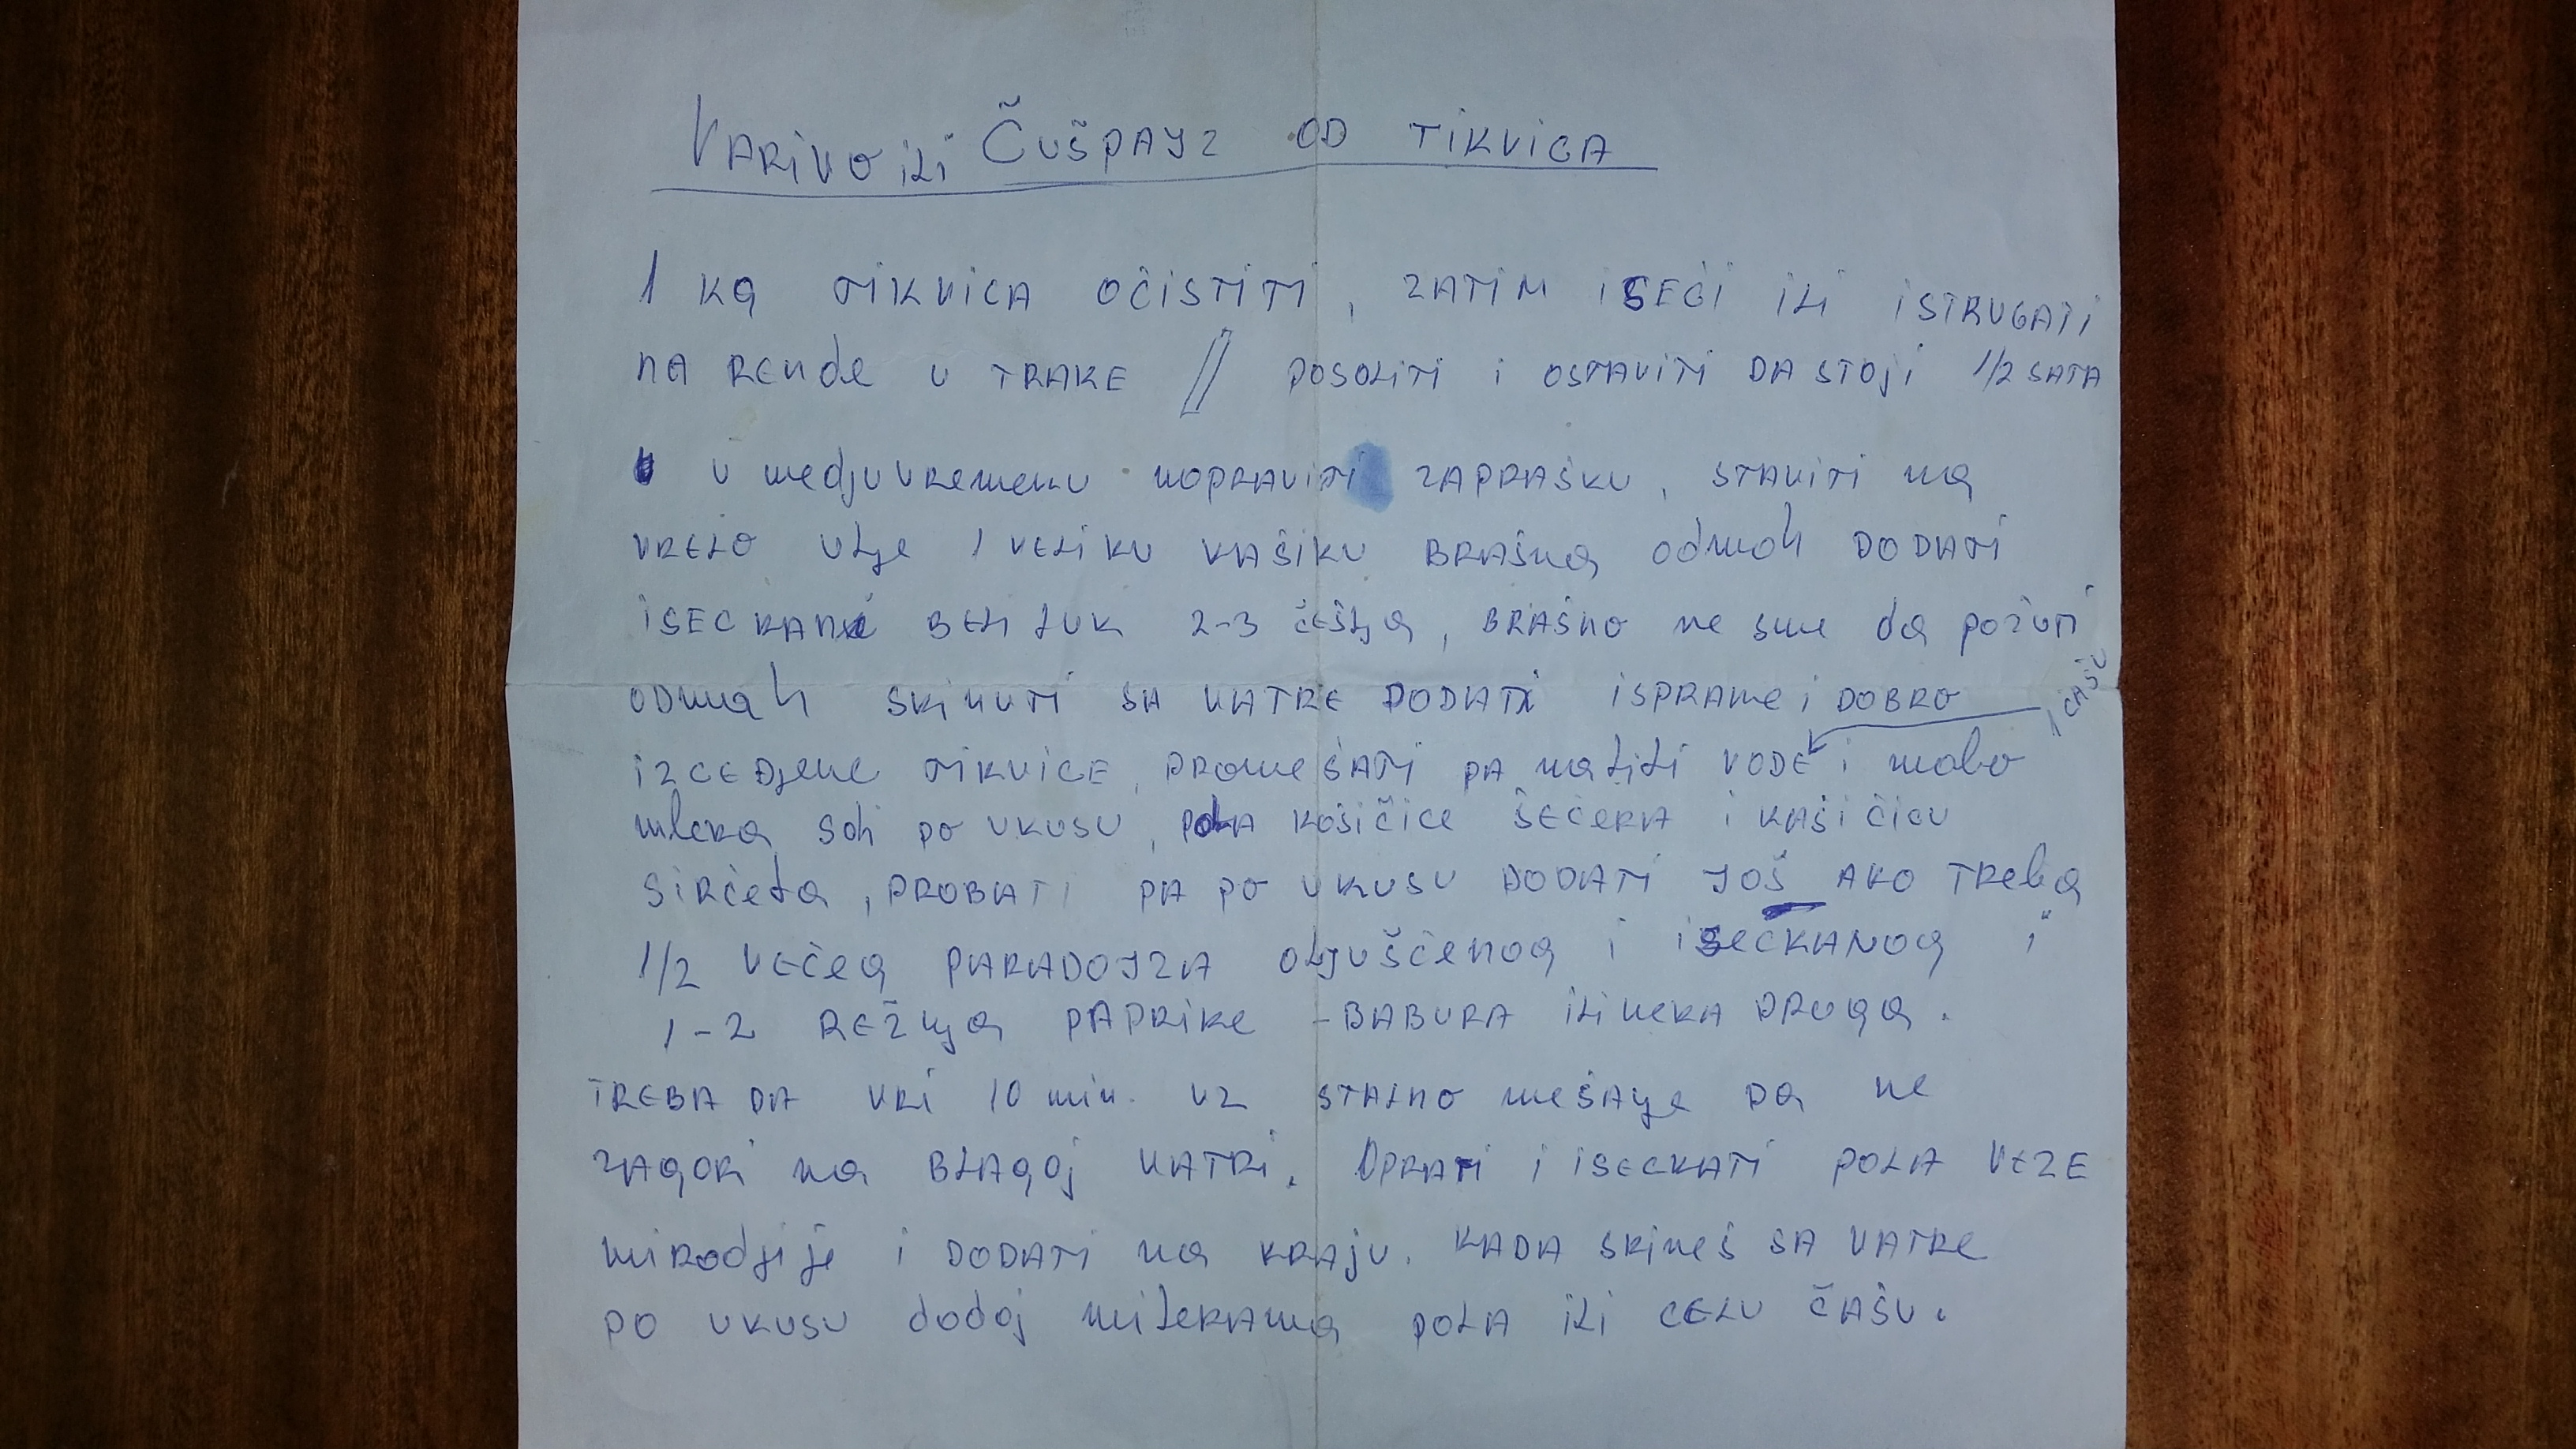 VARIVO ili ČUŠPAJZ OD TIKVICA
1 kg TIKVICA OČISTITI, ZATIM ISEĆI ILI ISTRUGATI
NA RENDE U TRAKE // POSOLITI I OSTAVITI DA STOJI 1/2 SATA
U medjuvremenu NAPRAVITI ZAPRAŠKU, STAVITI na
VRELO ulje 1 VELIKU KAŠIKU BRAŠna odmah DODATI
iSECKANi BELI LUK 2-3 češnja, BRAŠNO ne sme da požuti
ODmah SKINUTI SA VATRE DODATI ISPRANE i DOBRO
izCEDJENE TIKVICE, PROMEŠATI PA naliti VODE i malo
mleka soli po ukusu, POLA kašičice ŠEĆERA i KAŠIČICU
Sirćeta, PROBATI PA PO UKUSU DODATI JOŠ AKO TREBA
1 ČAŠU
1/2 VEĆEG PARADOJZA OLJUŠĆENOG i iSECKANOG,
1-2 REŽnja PAPRIKE - BABURA ILI NEKA DRUGA.
TREBA DA VRI 10 min. UZ STALNO mešANje DA ne
ZAGORI na BLAGOJ VATRI. OPRATI i iSECKATI POLA VEZE
MIROdjije i DODATI na KRAJU. KADA SKINEŠ SA VATRE
PO UKUSU dodaj milerama POLA ili CELU ČAŠU.